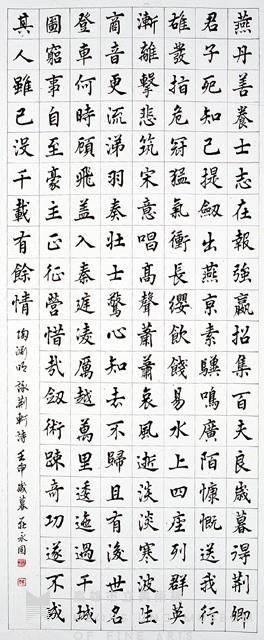 燕丹善養士志在報強嬴招集百夫良歲暮得荊卿
君子死知己提劔出燕京素驥鳴廣陌慷慨送我行
雄髮指危冠猛氣衝長纓飲餞易水上四座列群英
漸離擊悲筑宋意唱高聲蕭蕭哀風逝淡淡寒波生
商音更流涕羽奏壯士驚心知去不歸且有後世名
登車何時顧飛蓋入秦庭凌厲越萬里逶迤過千城
圖窮事自至豪主正征營惜哉劔術踈奇功遂不成
其人雖已沒千載有餘情
陶淵明詠荊軻詩壬申歲暮莊永固
OF FINE ART